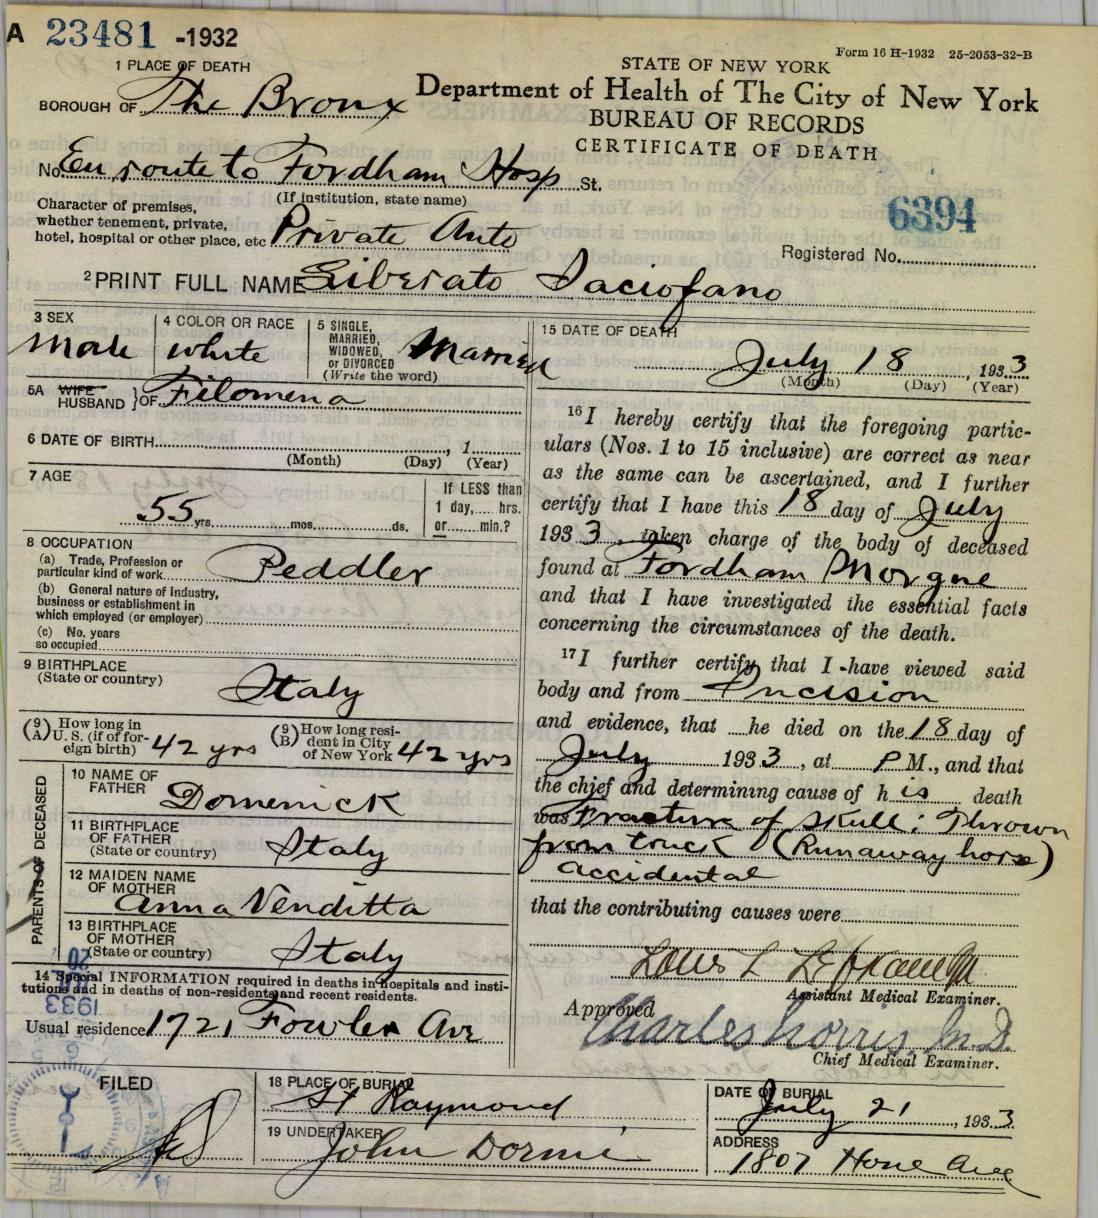 A 23481 -1932
Form 16 H-1932 25-2053-32-B
1 PLACE OF DEATH
STATE OF NEW YORK
Department of Health of The City of New York
BUREAU OF RECORDS
CERTIFICATE OF DEATH
BOROUGH OF The Bronx
No. En route to Fordham Hosp St.
(If institution, state name)
Character of premises,
whether tenement, private,
hotel, hospital or other place, etc Private Auto
6394
Registered No.
2 PRINT FULL NAME Liberato Iaciofano
3 SEX
Male
4 COLOR OR RACE
white
5 SINGLE,
MARRIED,
WIDOWED,
or DIVORCED
(Write the word)
Married
5A WIFE
HUSBAND } OF Filomena
6 DATE OF BIRTH , 1
(Month) (Day) (Year)
7 AGE
55 yrs. mos. ds.
If LESS than
1 day, hrs.
or min.?
8 OCCUPATION
(a) Trade, Profession or
particular kind of work Peddler
(b) General nature of Industry,
business or establishment in
which employed (or employer)
(c) No. years
so occupied
9 BIRTHPLACE
(State or country) Italy
(9A) How long in
U. S. (if of for-
eign birth) 42 yrs
(9B) How long resi-
dent in City
of New York 42 yrs
PARENTS OF DECEASED
10 NAME OF
FATHER Domenick
11 BIRTHPLACE
OF FATHER
(State or country) Italy
12 MAIDEN NAME
OF MOTHER
Anna Venditta
13 BIRTHPLACE
OF MOTHER
(State or country) Italy
14 Special INFORMATION required in deaths in hospitals and insti-
tutions and in deaths of non-residents and recent residents.
Usual residence 1721 Fowler Ave
20
1933
15 DATE OF DEATH
July 18, 1933
(Month) (Day) (Year)
16 I hereby certify that the foregoing partic-
ulars (Nos. 1 to 15 inclusive) are correct as near
as the same can be ascertained, and I further
certify that I have this 18 day of July
1933, taken charge of the body of deceased
found at Fordham Morgue
and that I have investigated the essential facts
concerning the circumstances of the death.
17 I further certify that I have viewed said
body and from Incision
and evidence, that he died on the 18 day of
July 1933, at P M., and that
the chief and determining cause of h is death
was Fracture of Skull: Thrown
from truck (Runaway horse)
accidental
that the contributing causes were
Louis L Lefkowitz
Assistant Medical Examiner.
Approved
Charles Norris, M.D.
Chief Medical Examiner.
FILED
18 PLACE OF BURIAL
St Raymond
DATE OF BURIAL
July 21, 1933
19 UNDERTAKER
John Dormi
ADDRESS
1807 Hone Ave